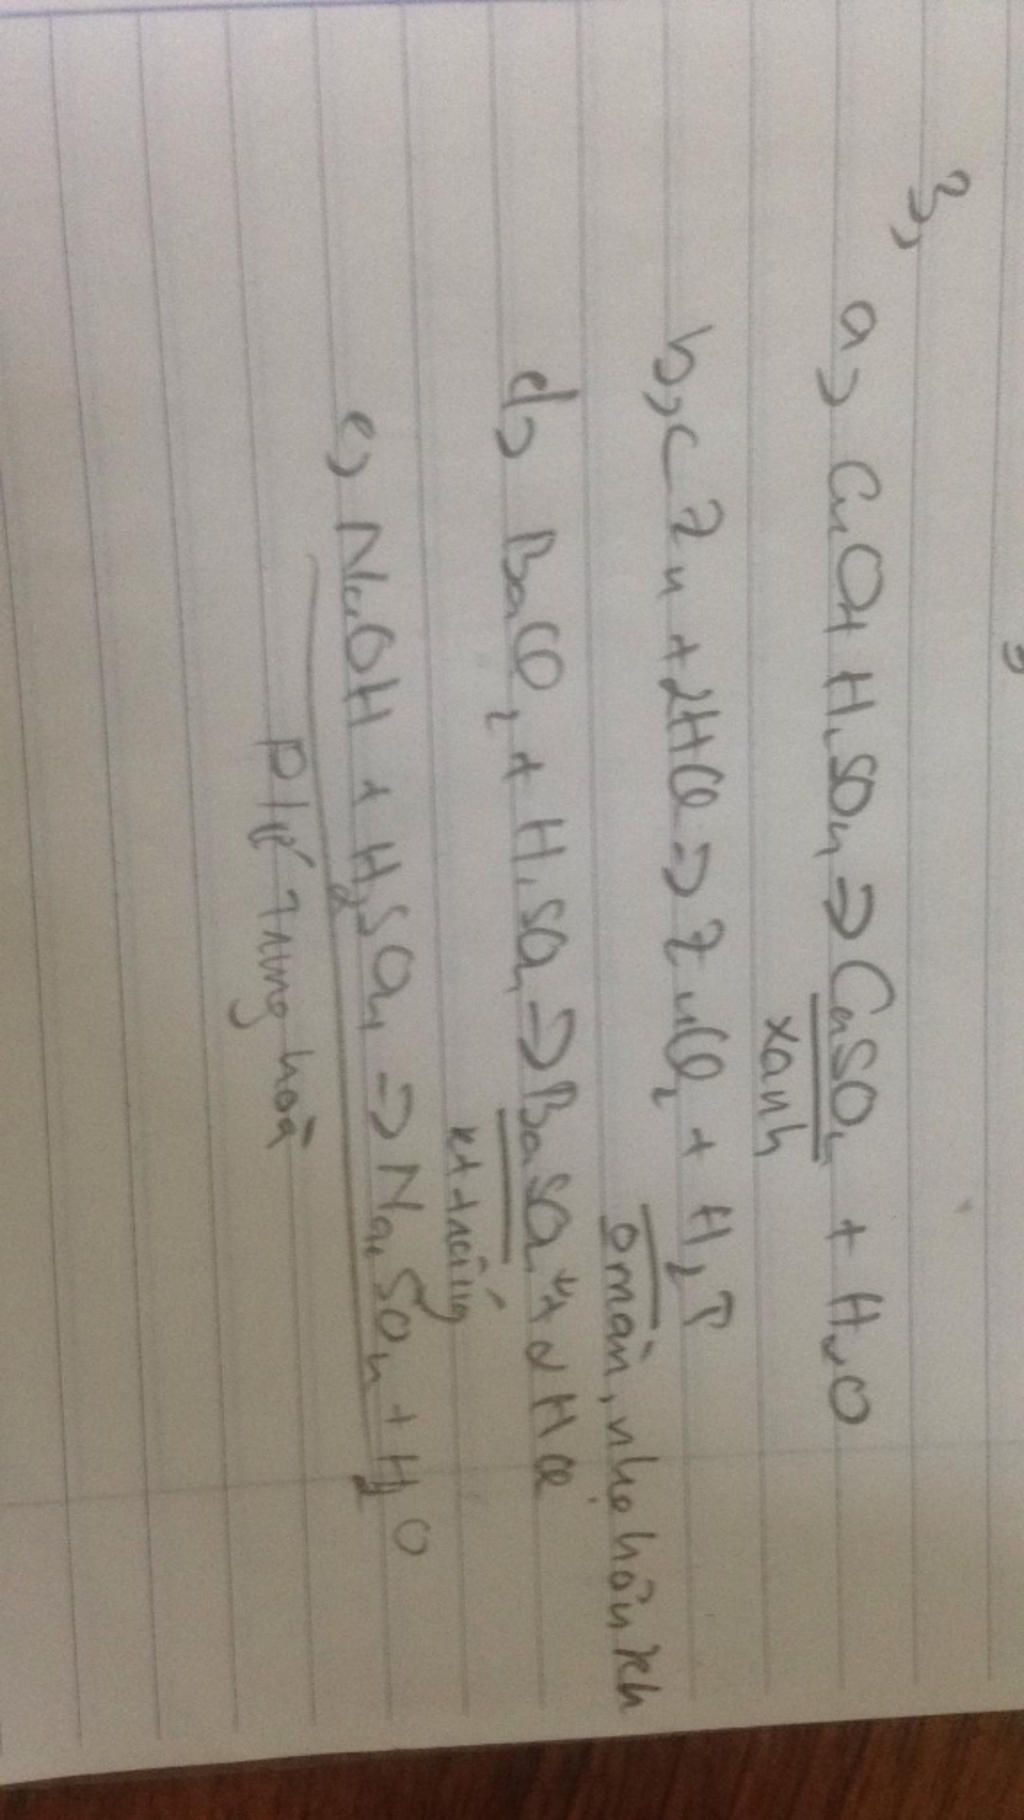 3,
a) CuO + H₂SO₄ => CuSO₄ + H₂O
xanh
b, c Zn + 2HCl => ZnCl₂ + H₂↑
0 màu, nhẹ hơn kk
d) BaCl₂ + H₂SO₄ => BaSO₄↓ + 2HCl
kt trắng
e) NaOH + H₂SO₄ => Na₂SO₄ + H₂O
P/ứ trung hoà